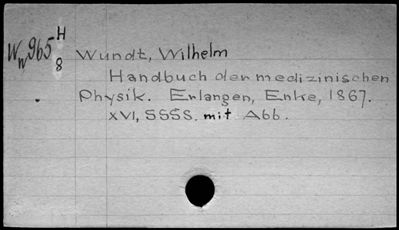 Wn965 H
8
Wundt, Wilhelm
Handbuch der medizinischen
Physik. Erlangen, Enke, 1867.
XVI, 555S. mit Abb.